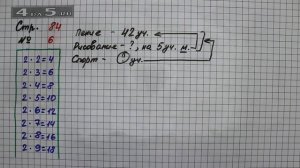 4 DA 5 .RU
Стр. 84
№ 6
Пение - 42 уч.
Рисование - ?, на 5 уч. м.
Спорт - ? уч.
2 · 2 = 4
2 · 3 = 6
2 · 4 = 8
2 · 5 = 10
2 · 6 = 12
2 · 7 = 14
2 · 8 = 16
2 · 9 = 18